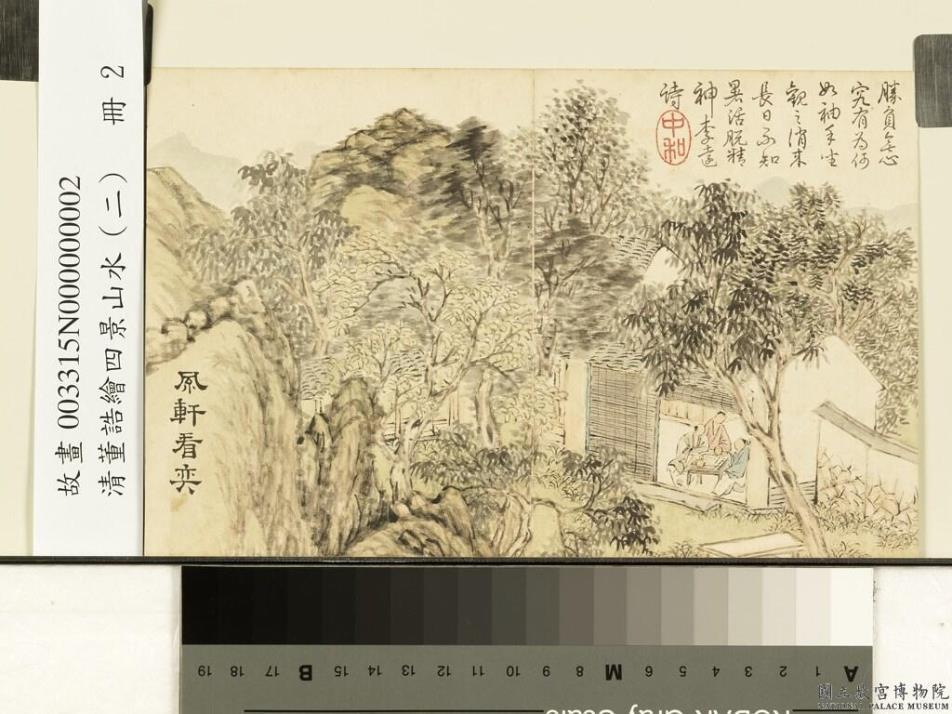 故畫 003315N000000002
清董誥繪四景山水(二) 冊 2
勝負無心
究有為何
如袖手坐
觀之消來
長日不知
暑活脫精
神李遠
詩
中和
風軒看奕
A 1 2 3 4 5 6 M 8 9 10 11 12 13 14 15 B 17 18 19
KODAK Gray Scale
國立故宮博物院
NATIONAL PALACE MUSEUM